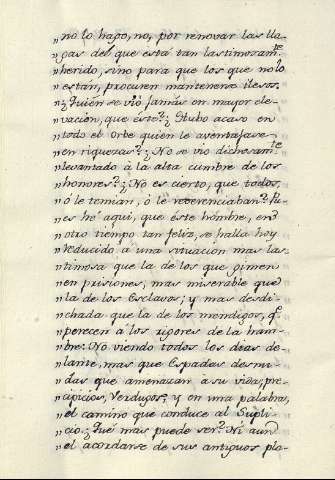 „no lo hago, no, por renovar las lla-
„gas del que está tan lastimosamte
„herido, sino para que los que no lo
„estan, procuren mantenerse ilesos.
„¿Quién se vió jamás en mayor ele-
„vación, que éste? ¿Hubo acaso en
„todo el Orbe quien le aventajase
„en riquezas? ¿No se vio dichosamte
„levantado à la alta cumbre de los
„honores? ¿No es cierto, que todos,
„ó le temian, ò le reverenciaban? Pu-
„es hé aqui, que éste hombre, en
„otro tiempo tan feliz, se halla hoy
„reducido à una situación mas las-
„timosa que la de los que gimen
„en prisiones, mas miserable que
„la de los Esclavos; y mas desdi-
„chada que la de los mendigos, qe
„perecen à los rigores de la ham-
„bre: No viendo todos los dias de-
„lante, mas que Espadas desnu-
„das que amenazan a su vida, pre-
„cipicios, Verdugos y en una palabra,
„el camino que conduce al Supli-
„cio. ¿Qué mas puede ser? Ni aun
„el acordarse de sus antiguos pla-